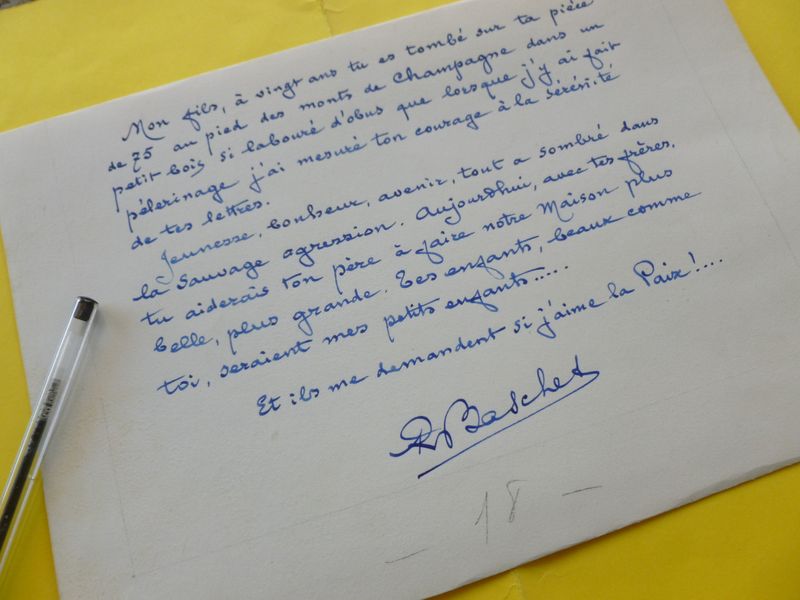 Mon fils, à vingt ans tu es tombé sur ta pièce
de 75 au pied des monts de Champagne dans un
petit bois si labouré d'obus que lorsque j'y ai fait
pélerinage j'ai mesuré ton courage à la sérénité
de tes lettres.
Jeunesse, bonheur, avenir, tout a sombré dans
la sauvage agression. Aujourdhui, avec tes frères,
tu aiderais ton père à faire notre Maison plus
belle, plus grande. Tes enfants, beaux comme
toi, seraient mes petits enfants.....
Et ils me demandent si j'aime la Paix!....
R Baschet
— 18 —